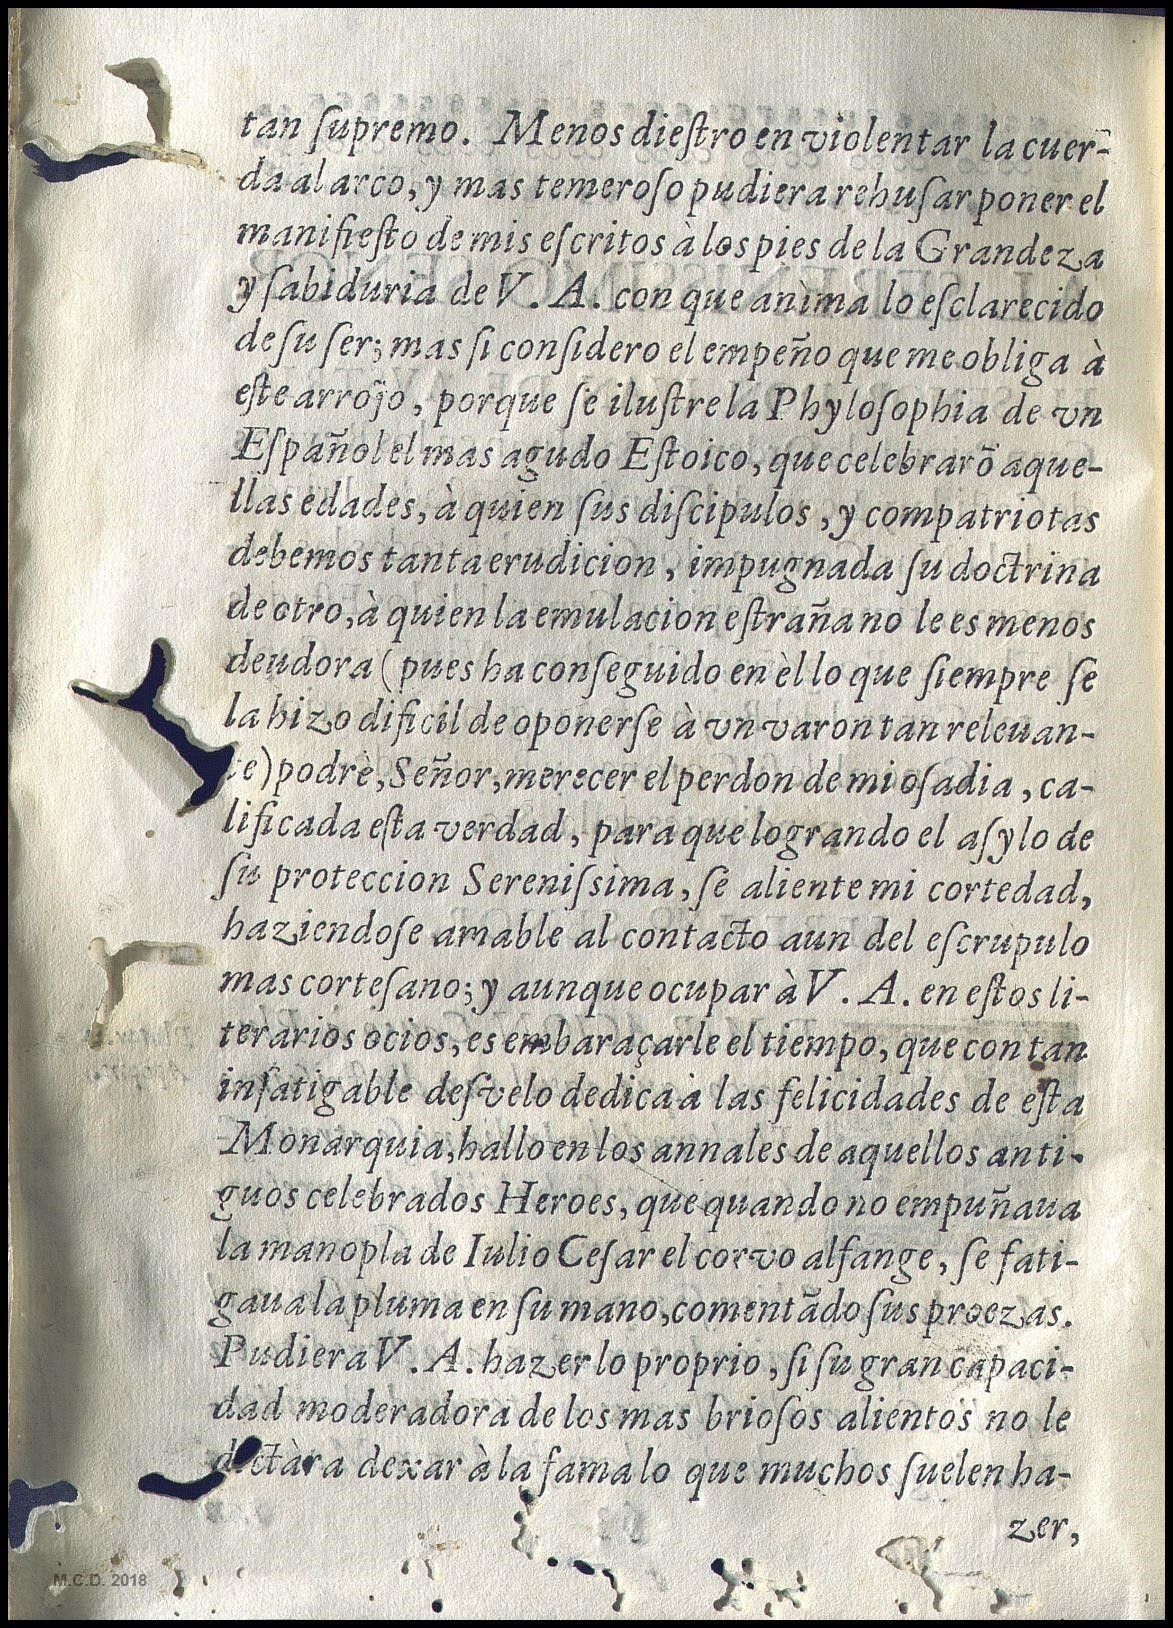 tan ſupremo. Menos dieſtro en violentar la cuer-
da al arco, y mas temeroſo pudiera rehuſar poner el
manifieſto de mis eſcritos à los pies de la Grandeza
y ſabiduria de V. A. con que anima lo eſclarecido
de ſu ſer; mas ſi conſidero el empeño que me obliga à
eſte arrojo, porque ſe iluſtre la Phyloſophia de vn
Eſpañol el mas agudo Eſtoico, que celebrarõ aque-
llas edades, à quien ſus diſcipulos, y compatriotas
debemos tanta erudicion, impugnada ſu doctrina
de otro, à quien la emulacion eſtraña no le es menos
deudora (pues ha conſeguido en èl lo que ſiempre ſe
la hizo dificil de oponerſe à vn varon tan releuan-
te) podrè, Señor, merecer el perdon de mi oſadia, ca-
lificada eſta verdad, para que logrando el aſylo de
ſu proteccion Sereniſsima, ſe aliente mi cortedad,
haziendoſe amable al contacto aun del eſcrupulo
mas corteſano; y aunque ocupar à V. A. en eſtos li-
terarios ocios, es embaraçarle el tiempo, que con tan
infatigable deſvelo dedica à las felicidades de eſta
Monarquia, hallo en los annales de aquellos anti-
guos celebrados Heroes, que quando no empuñaua
la manopla de Iulio Ceſar el corvo alfange, ſe fati-
gaua la pluma en ſu mano, comentãdo ſus proezas.
Pudiera V. A. hazer lo proprio, ſi ſu gran capaci-
dad moderadora de los mas brioſos alientos no le
dictàra dexar à la fama lo que muchos ſuelen ha-
zer,
M.C.D. 2018